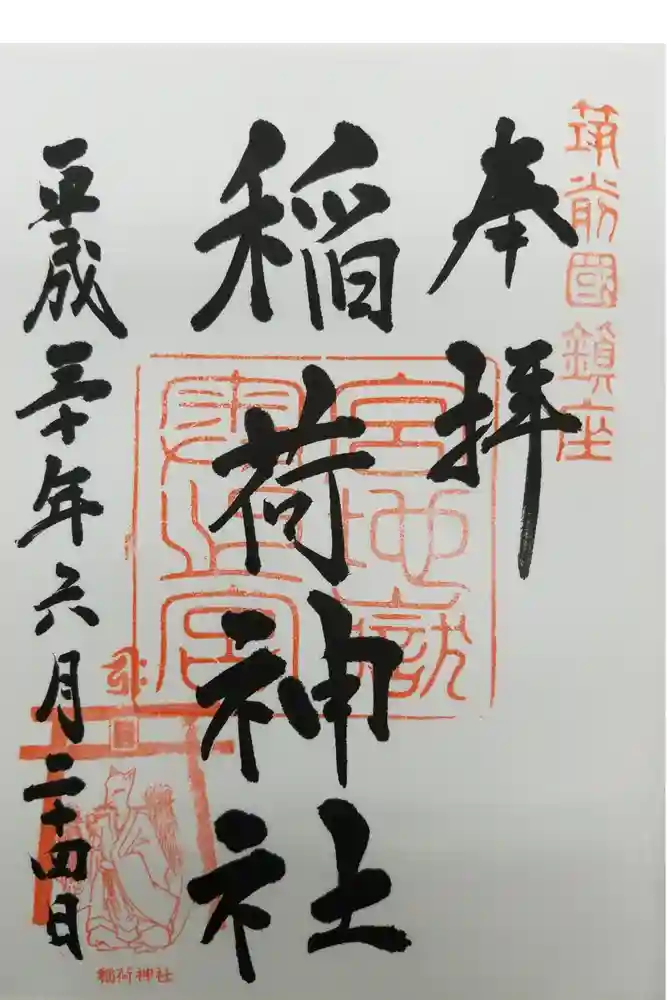 筑前國鎮座
奉拝
稲荷神社
宮地嶽
奥之宮
平成三十年六月二十四日
稲荷神社